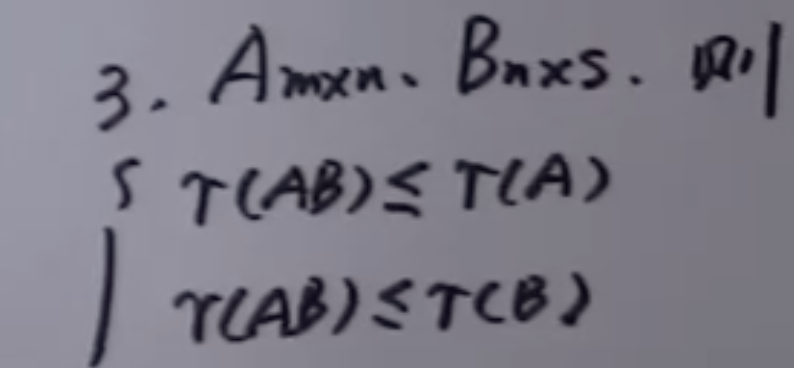 3. Amxn、Bnxs. 则
{ r(AB)≤r(A)
r(AB)≤r(B)